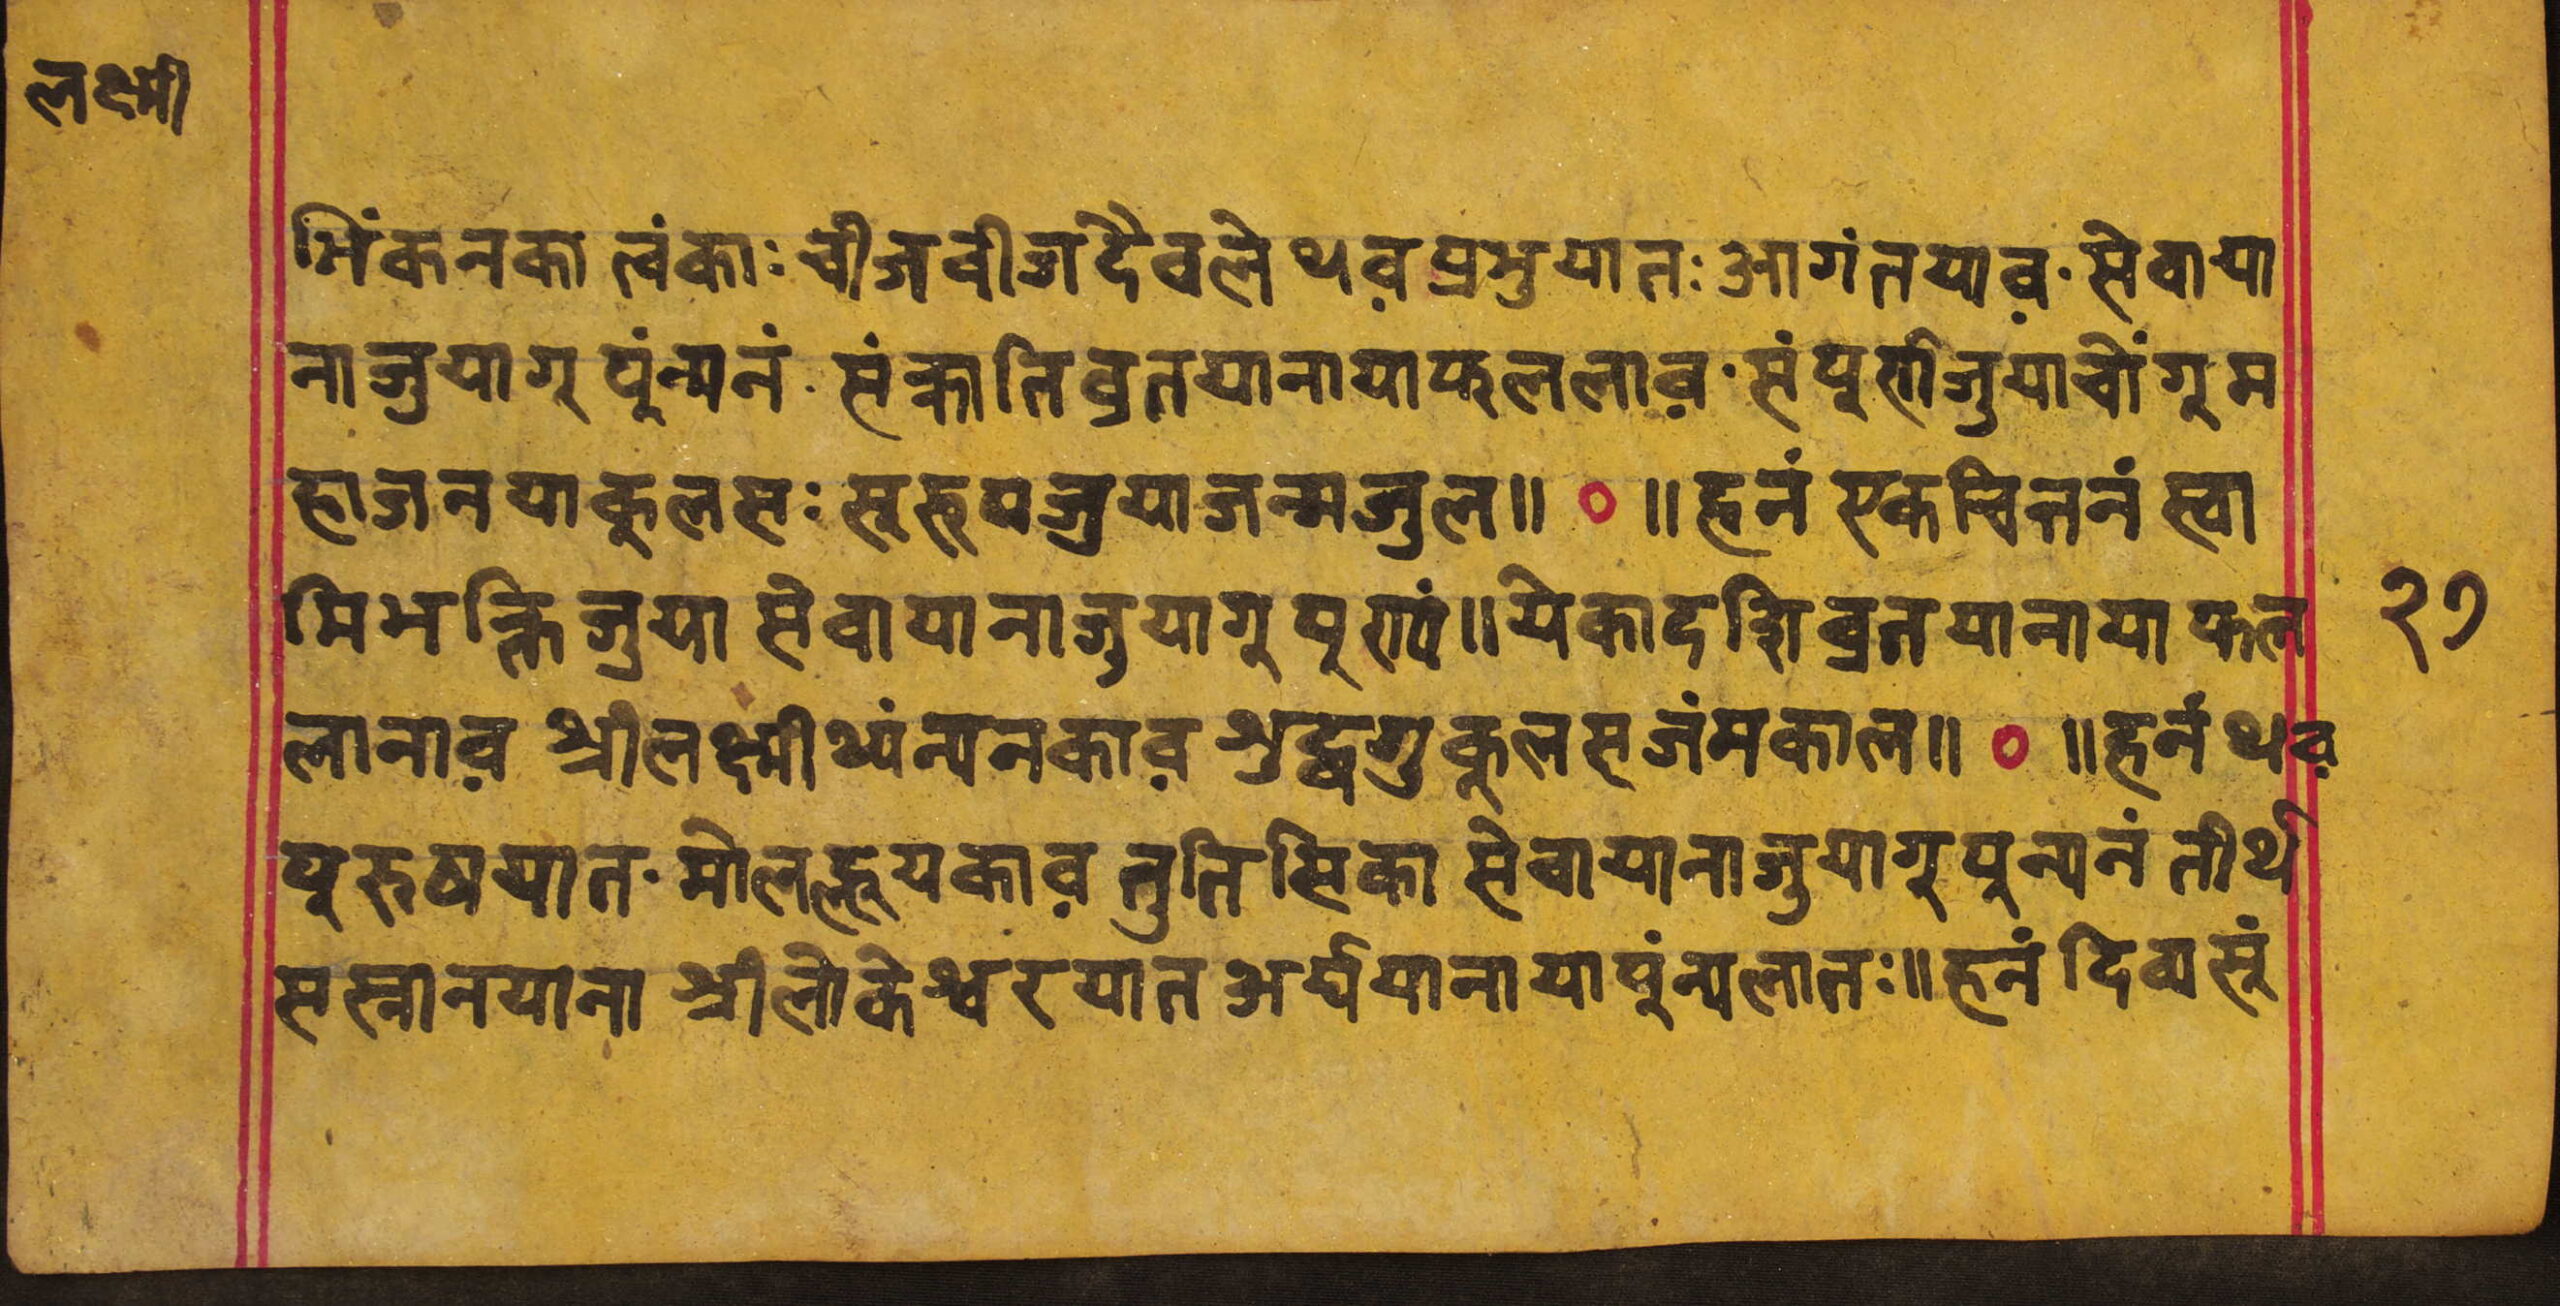 लक्ष्मी
मिंकनकालंकाः चीजवीजदैवले थव़प्रभुयातः आगंतयाव़· सेवाया
नाजुयागू पूंन्यनं · संक्रातिव्रतयानायाफललाव़· संपूर्णजुयाचोंगू म
हाजनयाकूलसः सुरूपजुयाजन्मजुल॥ ० ॥ हनं एकचित्तनं स्वा
मिभक्तिजुया सेवायानाजुयागू पूण्यं॥ येकादशिव्रतयानाया फल
लानाव़ श्रीलक्ष्मीथ्यंन्यनकाव़ शुद्धगु कूलस जंमकाल॥ ० ॥ हनं थव़
पूरुषयात· मोलल्हूयकाव़ तुतिसिका सेवायानाजुयागू पून्यनं तीर्थ
सस्नानयाना श्रीलोकेश्वरयात अर्घयानाया पूंन्यलातः॥ हनं दिव्यसूं
२७